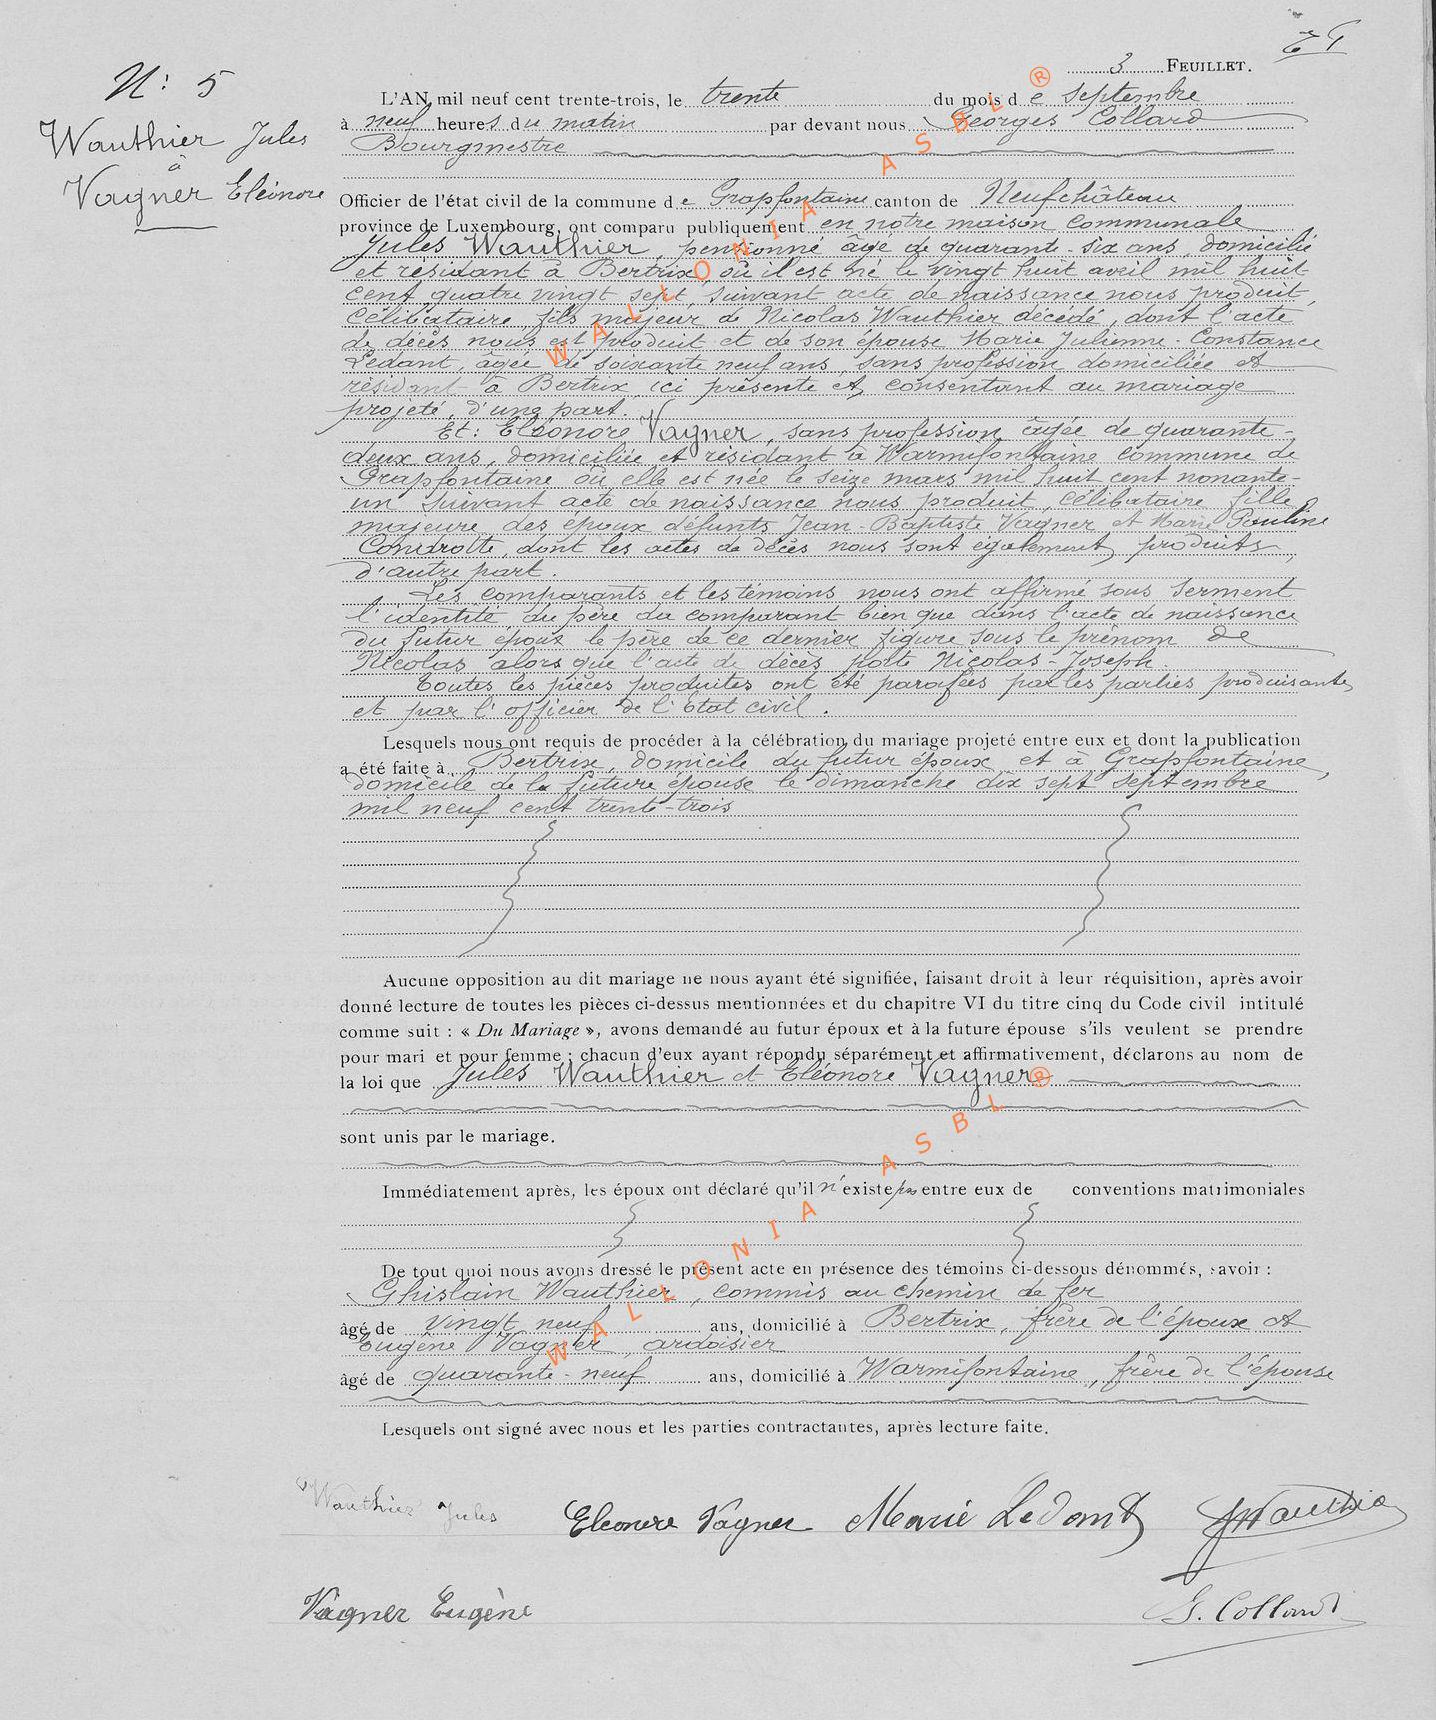 3 FEUILLET.
N: 5
Wauthier Jules
à
Vagner Eléonore
L'AN mil neuf cent trente-trois, le trente du mois de septembre
à neuf heures du matin par devant nous Georges Collard
Bourgmestre
Officier de l'état civil de la commune de Grapfontaine canton de Neufchâteau
province de Luxembourg, ont comparu publiquement en notre maison communale
Jules Wauthier, pensionné âgé de quarante-six ans, domicilié
et résidant à Bertrix, où il est né le vingt huit avril mil huit
cent quatre vingt sept, suivant acte de naissance nous produit,
célibataire, fils majeur de Nicolas Wauthier décédé, dont l'acte
de décès nous est produit et de son épouse Marie Julienne-Constance
Ledant, âgée de soixante neuf ans, sans profession domiciliée et
résidant à Bertrix, ici présente et consentant au mariage
projeté, d'une part.
Et: Eléonore Vagner, sans profession âgée de quarante-
deux ans, domiciliée et résidant à Warmifontaine commune de
Grapfontaine où elle est née le seize mars mil huit cent nonante-
un suivant acte de naissance nous produit, célibataire fille
majeure des époux défunts Jean-Baptiste Vagner et Marie Pauline
Condrotte, dont les actes de décès nous sont également produits,
d'autre part.
Les comparants et les témoins nous ont affirmé sous serment
l'identité du père du comparant bien que dans l'acte de naissance
du futur époux le père de ce dernier figure sous le prénom de
Nicolas alors que l'acte de décès porte Nicolas-Joseph.
Toutes les pièces produites ont été parafées par les parties produisantes
et par l'officier de l'état civil.
Lesquels nous ont requis de procéder à la célébration du mariage projeté entre eux et dont la publication
a été faite à Bertrix, domicile du futur époux et à Grapfontaine,
domicile de la future épouse le dimanche dix sept septembre
mil neuf cent trente-trois
Aucune opposition au dit mariage ne nous ayant été signifiée, faisant droit à leur réquisition, après avoir
donné lecture de toutes les pièces ci-dessus mentionnées et du chapitre VI du titre cinq du Code civil intitulé
comme suit : « Du Mariage », avons demandé au futur époux et à la future épouse s'ils veulent se prendre
pour mari et pour femme ; chacun d'eux ayant répondu séparément et affirmativement, déclarons au nom de
la loi que Jules Wauthier et Eléonore Vagner
sont unis par le mariage.
Immédiatement après, les époux ont déclaré qu'il n'existe pas entre eux de conventions matrimoniales
De tout quoi nous avons dressé le présent acte en présence des témoins ci-dessous dénommés, savoir :
Ghislain Wauthier, commis au chemin de fer
âgé de vingt neuf ans, domicilié à Bertrix, frère de l'époux et
Eugène Vagner, ardoisier
âgé de quarante-neuf ans, domicilié à Warmifontaine, frère de l'épouse
Lesquels ont signé avec nous et les parties contractantes, après lecture faite.
Wauthier Jules Eleonore Vagner Marie Ledant GWauthier
Vagner Eugène G. Collard
WALLONIA ASBL ®
WALLONIA ASBL ®